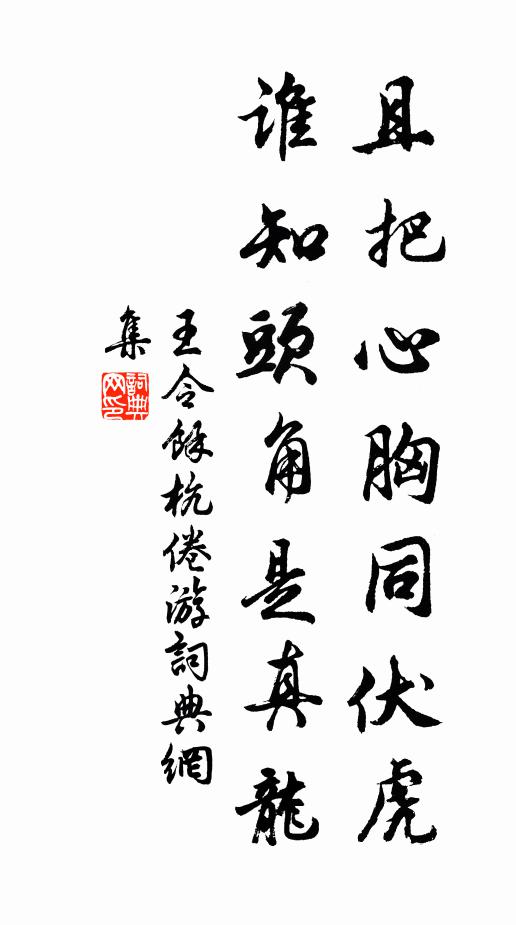 且把心胸同伏虎
誰知頭角是真龍
王令餘杭倦游詞典網
集
詞典網印